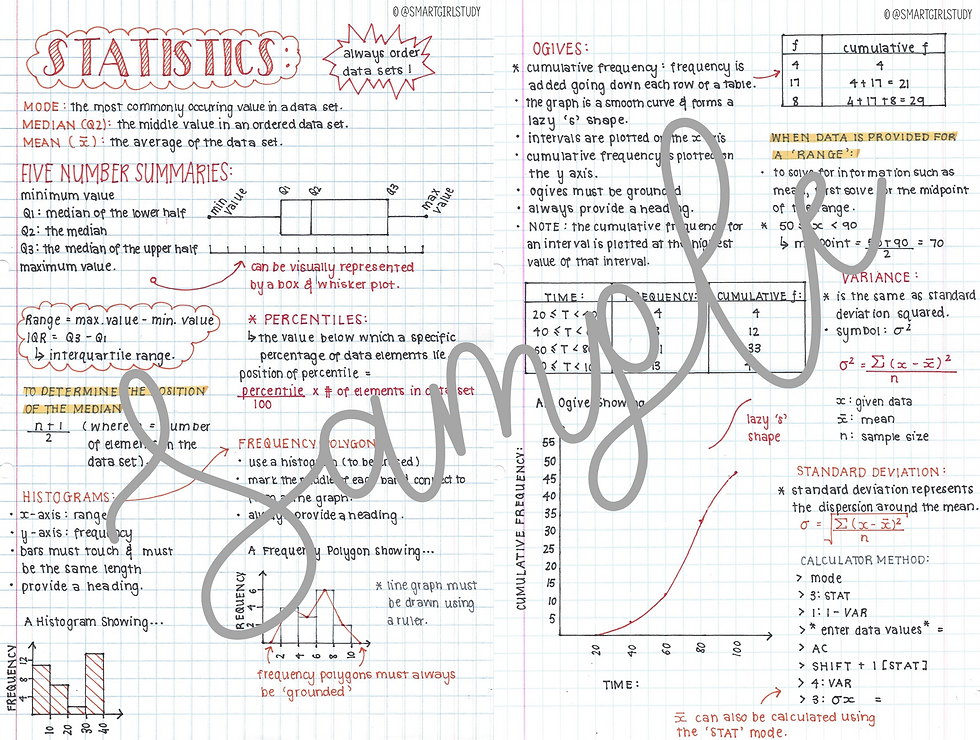 © @SMARTGIRLSTUDY
STATISTICS:
always order
data sets!
MODE: the most commonly occuring value in a data set.
MEDIAN (Q2): the middle value in an ordered data set.
MEAN (x̄): the average of the data set.
FIVE NUMBER SUMMARIES:
minimum value
Q1: median of the lower half
Q2: the median
Q3: the median of the upper half
maximum value.
min value
Q1
Q2
Q3
max value
can be visually represented
by a box & whisker plot.
Range = max. value - min. value
IQR = Q3 - Q1
↳ interquartile range.
* PERCENTILES:
↳ the value below which a specific
percentage of data elements lie
position of percentile =
percentile / 100 x # of elements in data set
TO DETERMINE THE POSITION
OF THE MEDIAN
n+1 / 2 (where n = number
of elements in the
data set).
HISTOGRAMS:
• x-axis: range
• y-axis: frequency
• bars must touch & must
be the same length
• provide a heading.
A Histogram Showing...
FREQUENCY
12
8
4
10
20
30
40
FREQUENCY POLYGON
• use a histogram (to be
• mark the middle of each band connect to
same graph.
• always provide a heading.
A Frequency Polygon showing...
FREQUENCY
6
4
2
2
4
6
8
10
* line graph must
be drawn using
a ruler.
frequency polygons must always
be 'grounded'
© @SMARTGIRLSTUDY
OGIVES:
* cumulative frequency: frequency is
added going down each row of a table.
• the graph is a smooth curve & forms a
lazy 's' shape.
• intervals are plotted on the x axis
• cumulative frequency is plotted on
the y axis.
• ogives must be grounded
• always provide a heading.
• NOTE: the cumulative frequency for
an interval is plotted at the highest
value of that interval.
f cumulative f
4 4
17 4+17 = 21
8 4+17+8 = 29
WHEN DATA IS PROVIDED FOR
A 'RANGE':
• to solve for information such as
mean, first solve for the midpoint
of the range.
* 50 ≤ x < 90
↳ midpoint = 50+90 / 2 = 70
TIME: FREQUENCY: CUMULATIVE f:
20 ≤ T < 40 4 4
40 ≤ T < 8 12
60 ≤ T < 80 33
≤ T < 13
An Ogive Showing
lazy 's'
shape
CUMULATIVE FREQUENCY:
55
50
45
40
35
30
25
20
15
10
5
20
40
60
80
100
TIME:
VARIANCE:
* is the same as standard
deviation squared.
• symbol: σ²
σ² = Σ(x - x̄)² / n
x: given data
x̄: mean
n: sample size
STANDARD DEVIATION:
* standard deviation represents
the dispersion around the mean.
σ = √Σ(x - x̄)² / n
CALCULATOR METHOD:
> mode
> 3: STAT
> 1: 1 - VAR
> * enter data values * =
> AC
> SHIFT + 1 [STAT]
> 4: VAR
> 3: σx =
x̄ can also be calculated using
the 'STAT' mode.
Sample